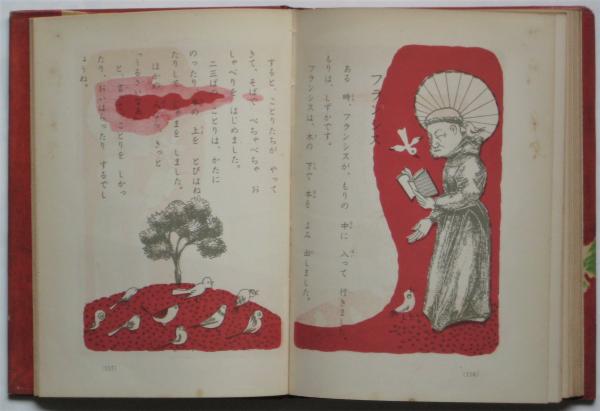 フランシス
ある 時、フランシスが、もりの 中に 入って 行きまし
もりは、しずかです。
フランシスは、木の 下で 本を よみ 出しました。
(156)
すると、ことりたちが やって
きて、そばで ぺちゃぺちゃ お
しゃべりを はじめました。
二三ばの ことりは、かたに
のったり、の 上を とびはね
たりして、じゃまを しました。
ほかの きっと
「うるさいな。」
と、言って ことりを しかっ
たり、おいはらったり するでし
ょうね。
(157)